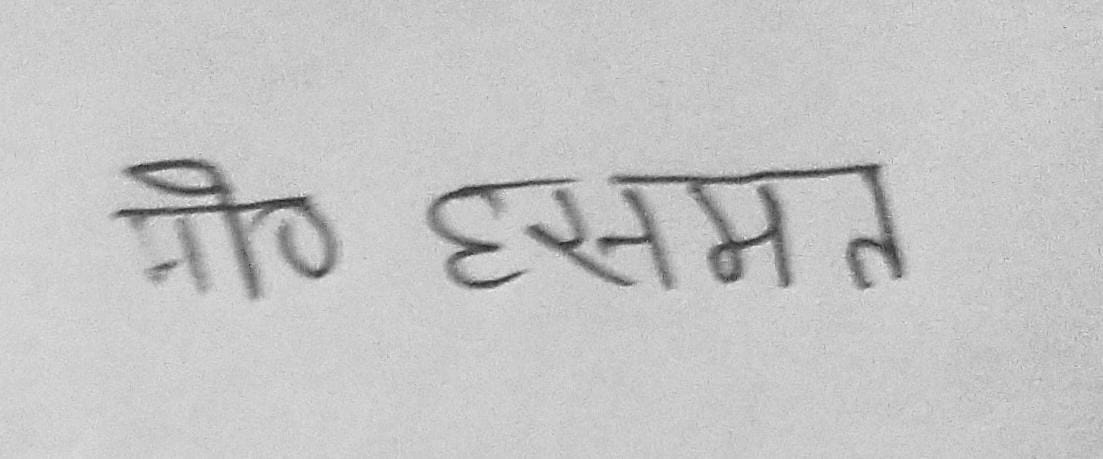 मो० हसमत